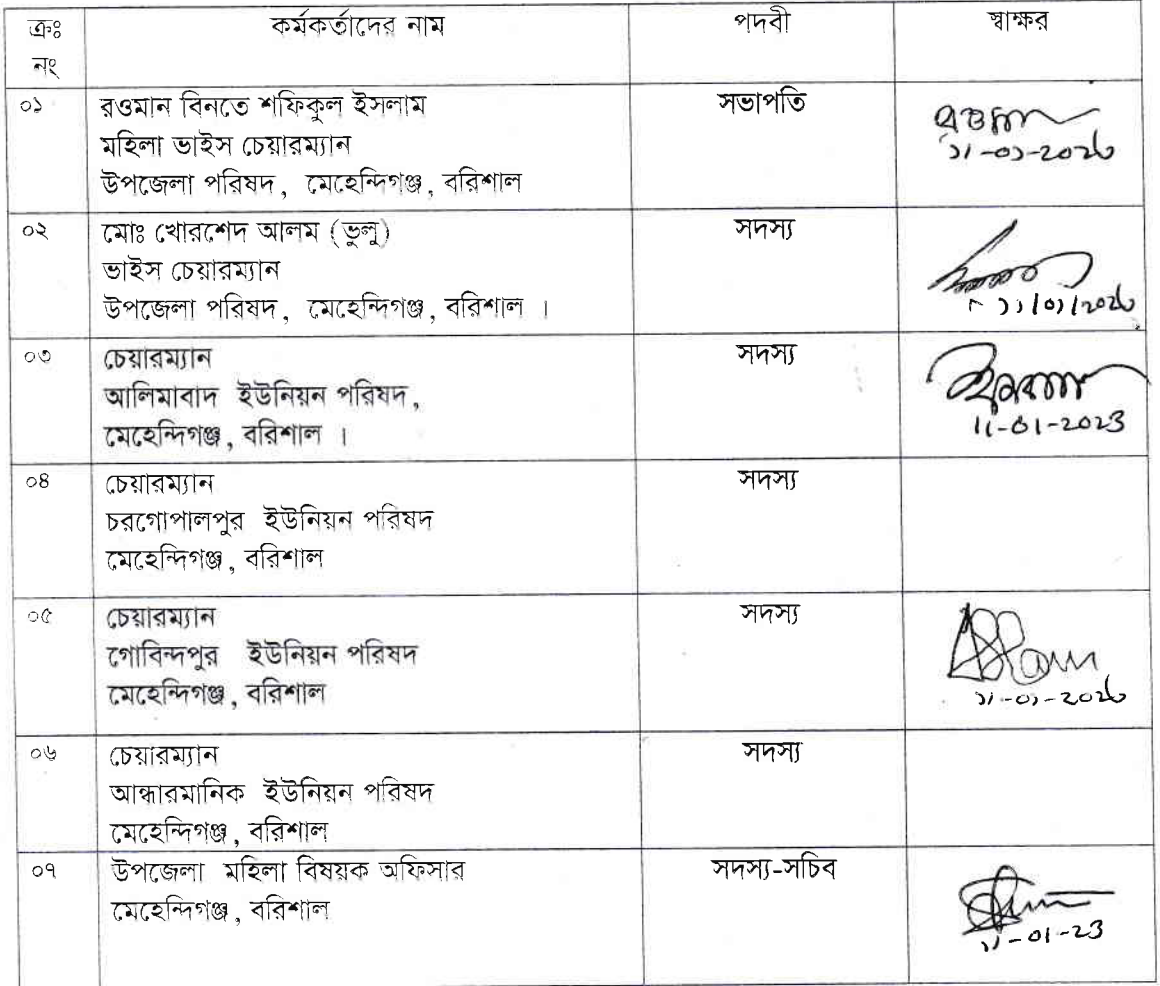 ক্রঃ নং কর্মকর্তাদের নাম পদবী স্বাক্ষর
০১ রওমান বিনতে শফিকুল ইসলাম সভাপতি
মহিলা ভাইস চেয়ারম্যান
উপজেলা পরিষদ, মেহেন্দিগঞ্জ, বরিশাল
১১-০১-২০২৩
০২ মোঃ খোরশেদ আলম (ভুলু) সদস্য
ভাইস চেয়ারম্যান
উপজেলা পরিষদ, মেহেন্দিগঞ্জ, বরিশাল ।
১১/০১/২০২৩
০৩ চেয়ারম্যান সদস্য
আলিমাবাদ ইউনিয়ন পরিষদ,
মেহেন্দিগঞ্জ, বরিশাল ।
11-01-2023
০৪ চেয়ারম্যান সদস্য
চরগোপালপুর ইউনিয়ন পরিষদ
মেহেন্দিগঞ্জ, বরিশাল
০৫ চেয়ারম্যান সদস্য
গোবিন্দপুর ইউনিয়ন পরিষদ
মেহেন্দিগঞ্জ, বরিশাল
১১-০১-২০২৩
০৬ চেয়ারম্যান সদস্য
আন্ধারমানিক ইউনিয়ন পরিষদ
মেহেন্দিগঞ্জ, বরিশাল
০৭ উপজেলা মহিলা বিষয়ক অফিসার সদস্য-সচিব
মেহেন্দিগঞ্জ, বরিশাল
11-01-23